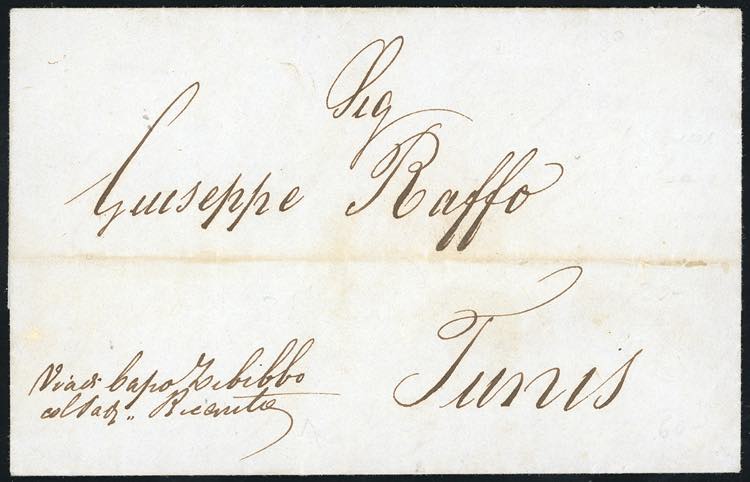 Sig
Giuseppe Raffo
Tunis
Via di Capo Zibibbo
col Pad.